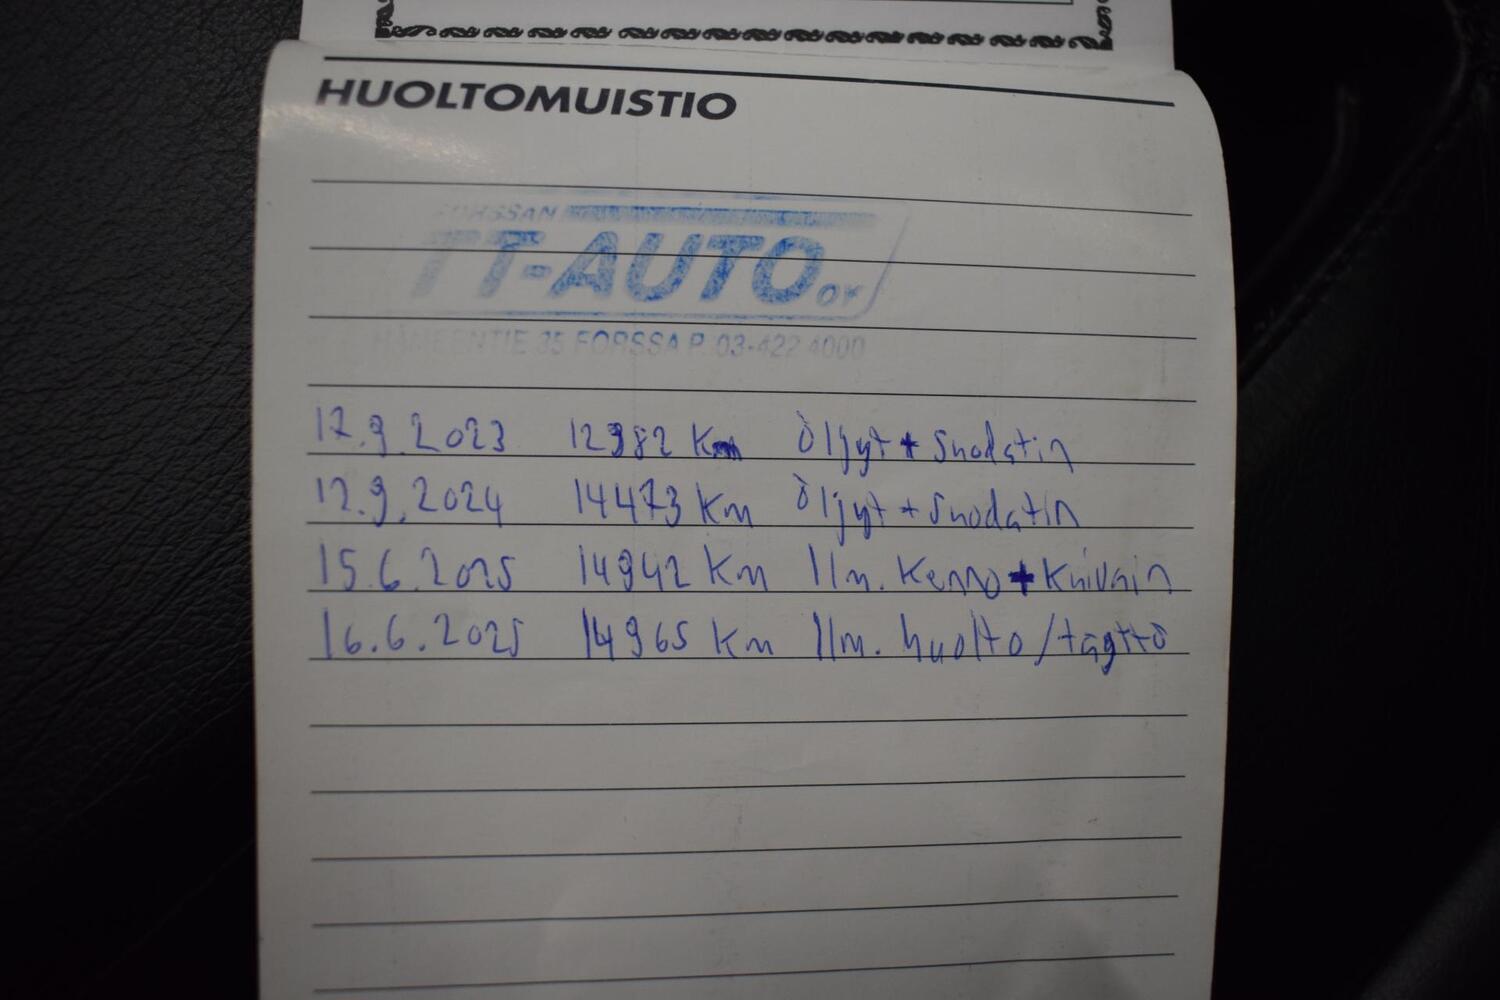 HUOLTOMUISTIO
FORSSAN
TT-AUTO OY
HÄMEENTIE 35 FORSSA P. 03-422 4000
12.9.2023 12982 Km Öljyt + Suodatin
12.9.2024 14473 Km Öljyt + Suodatin
15.6.2025 14942 Km Ilm. Kenno + Kuivain
16.6.2025 14965 Km Ilm. huolto/täyttö